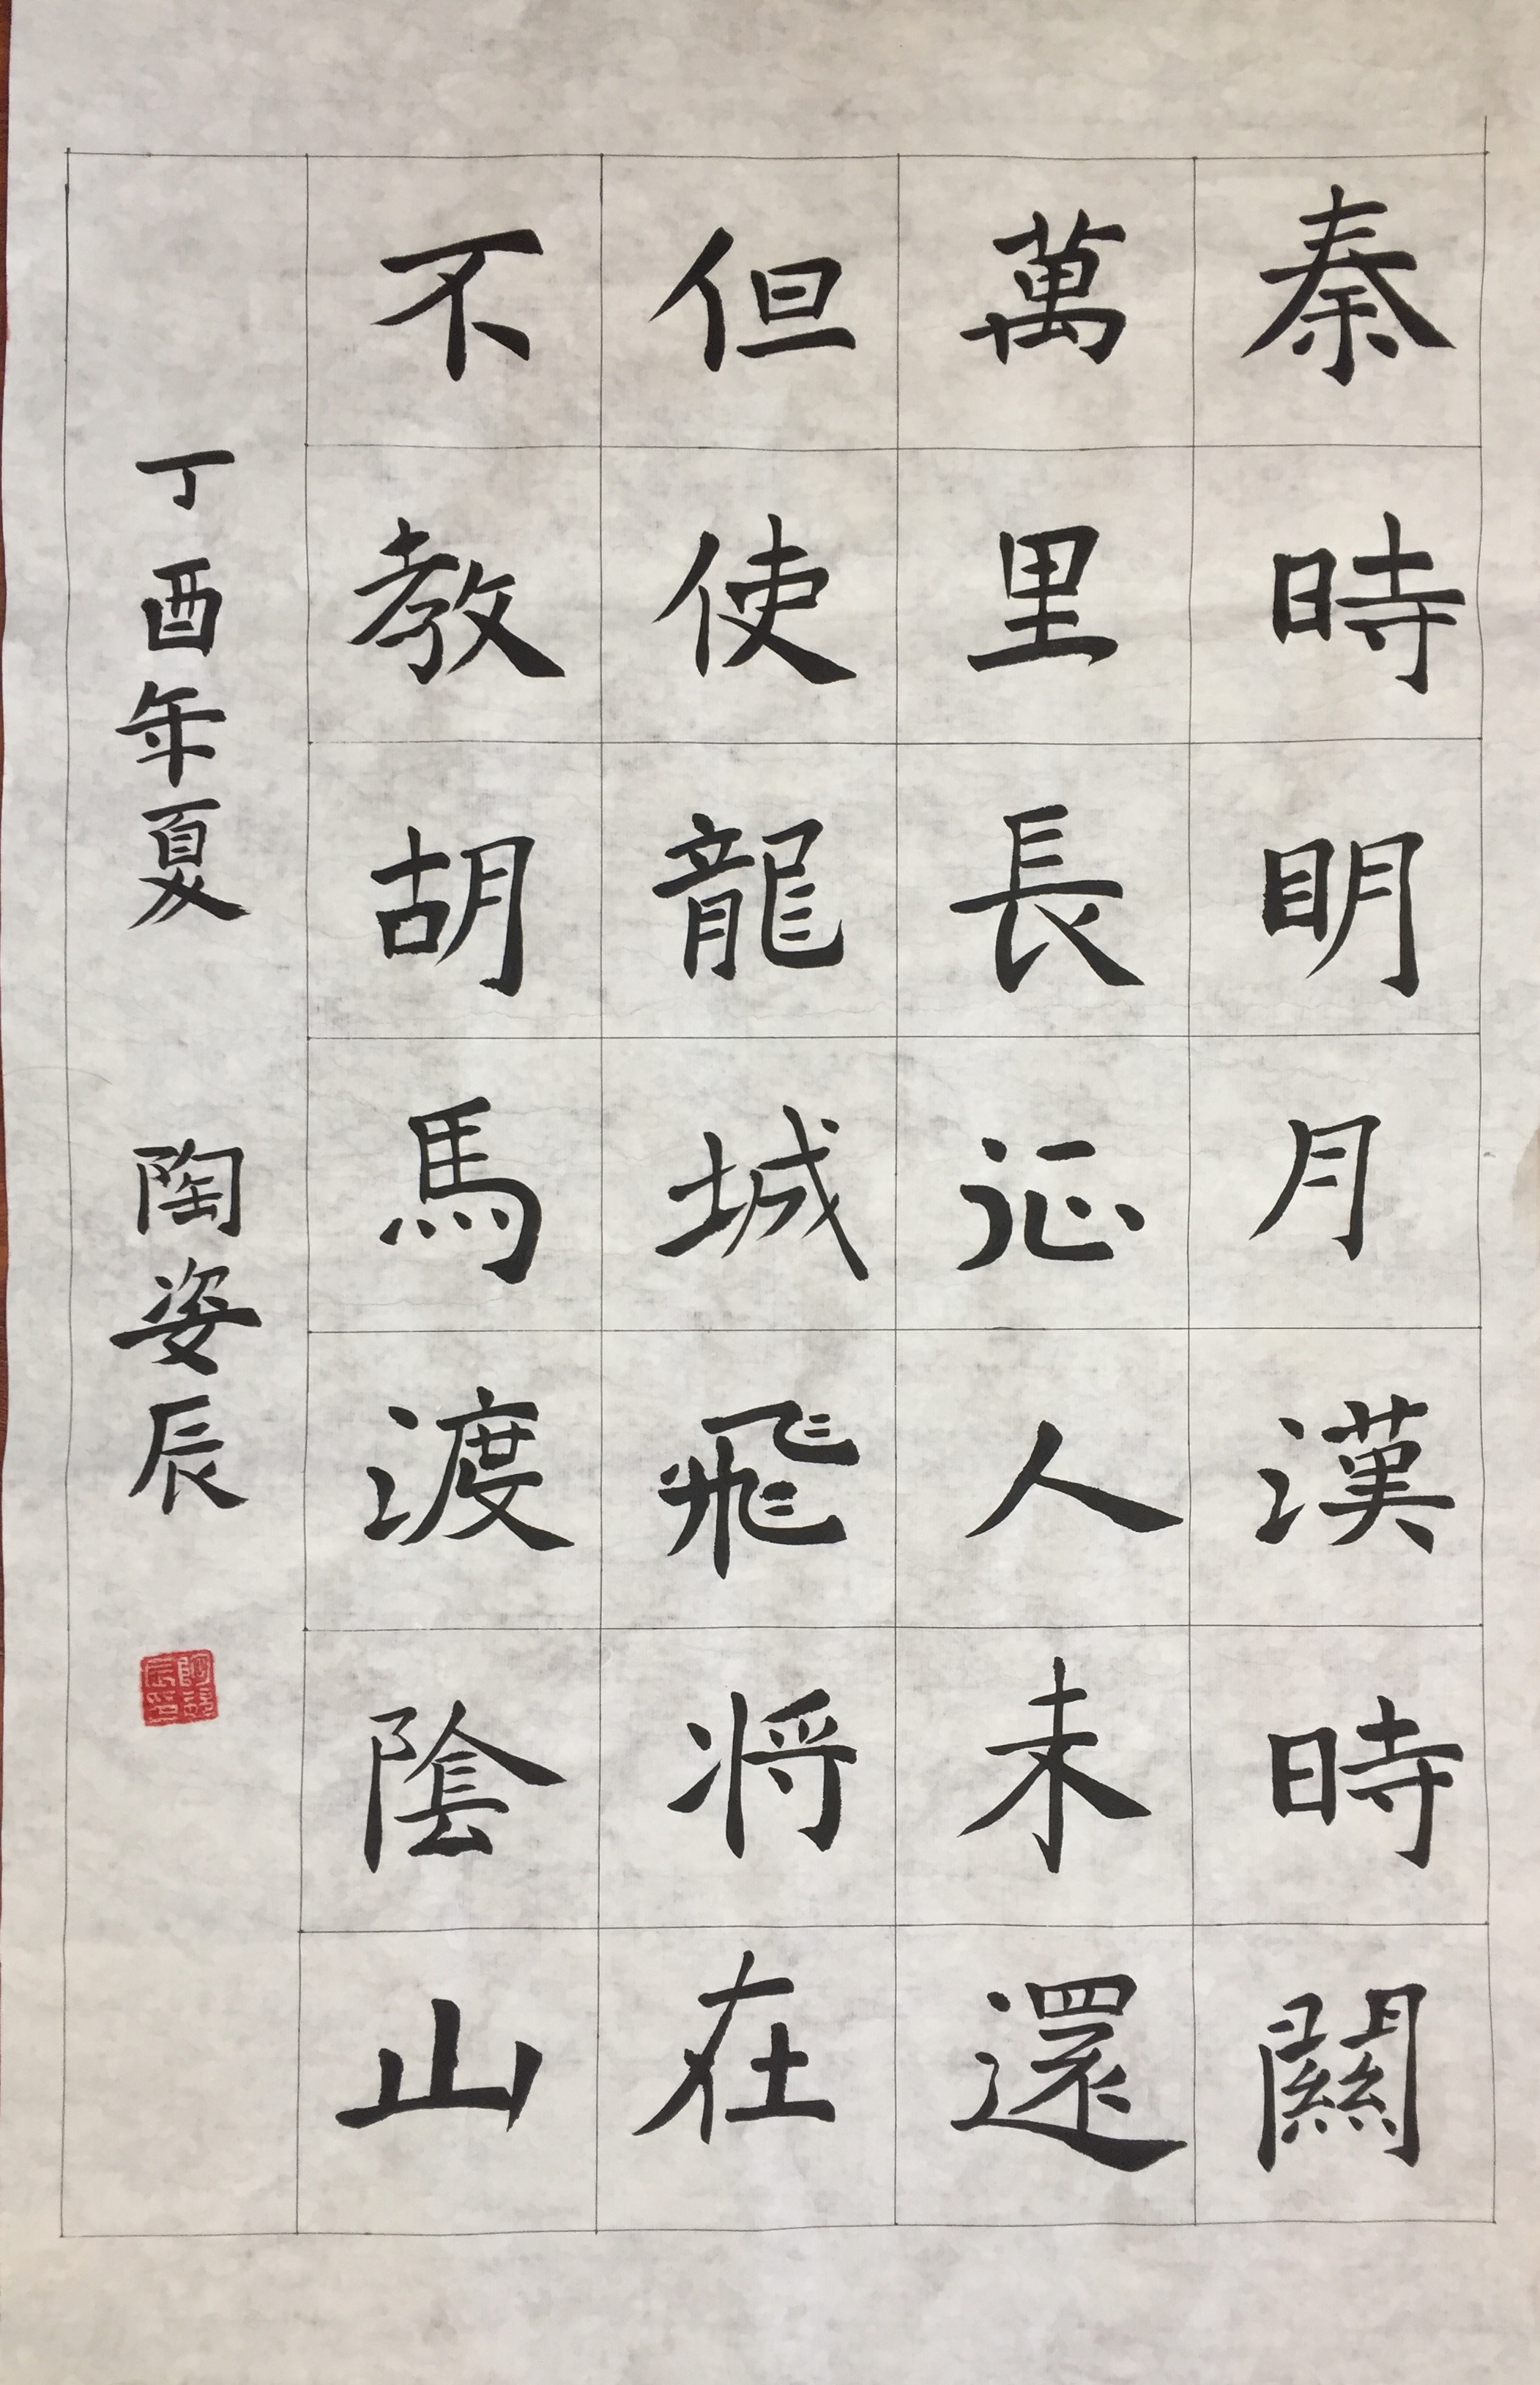 秦時明月漢時關
萬里長征人未還
但使龍城飛将在
不教胡馬渡陰山
丁酉年夏 陶姿辰